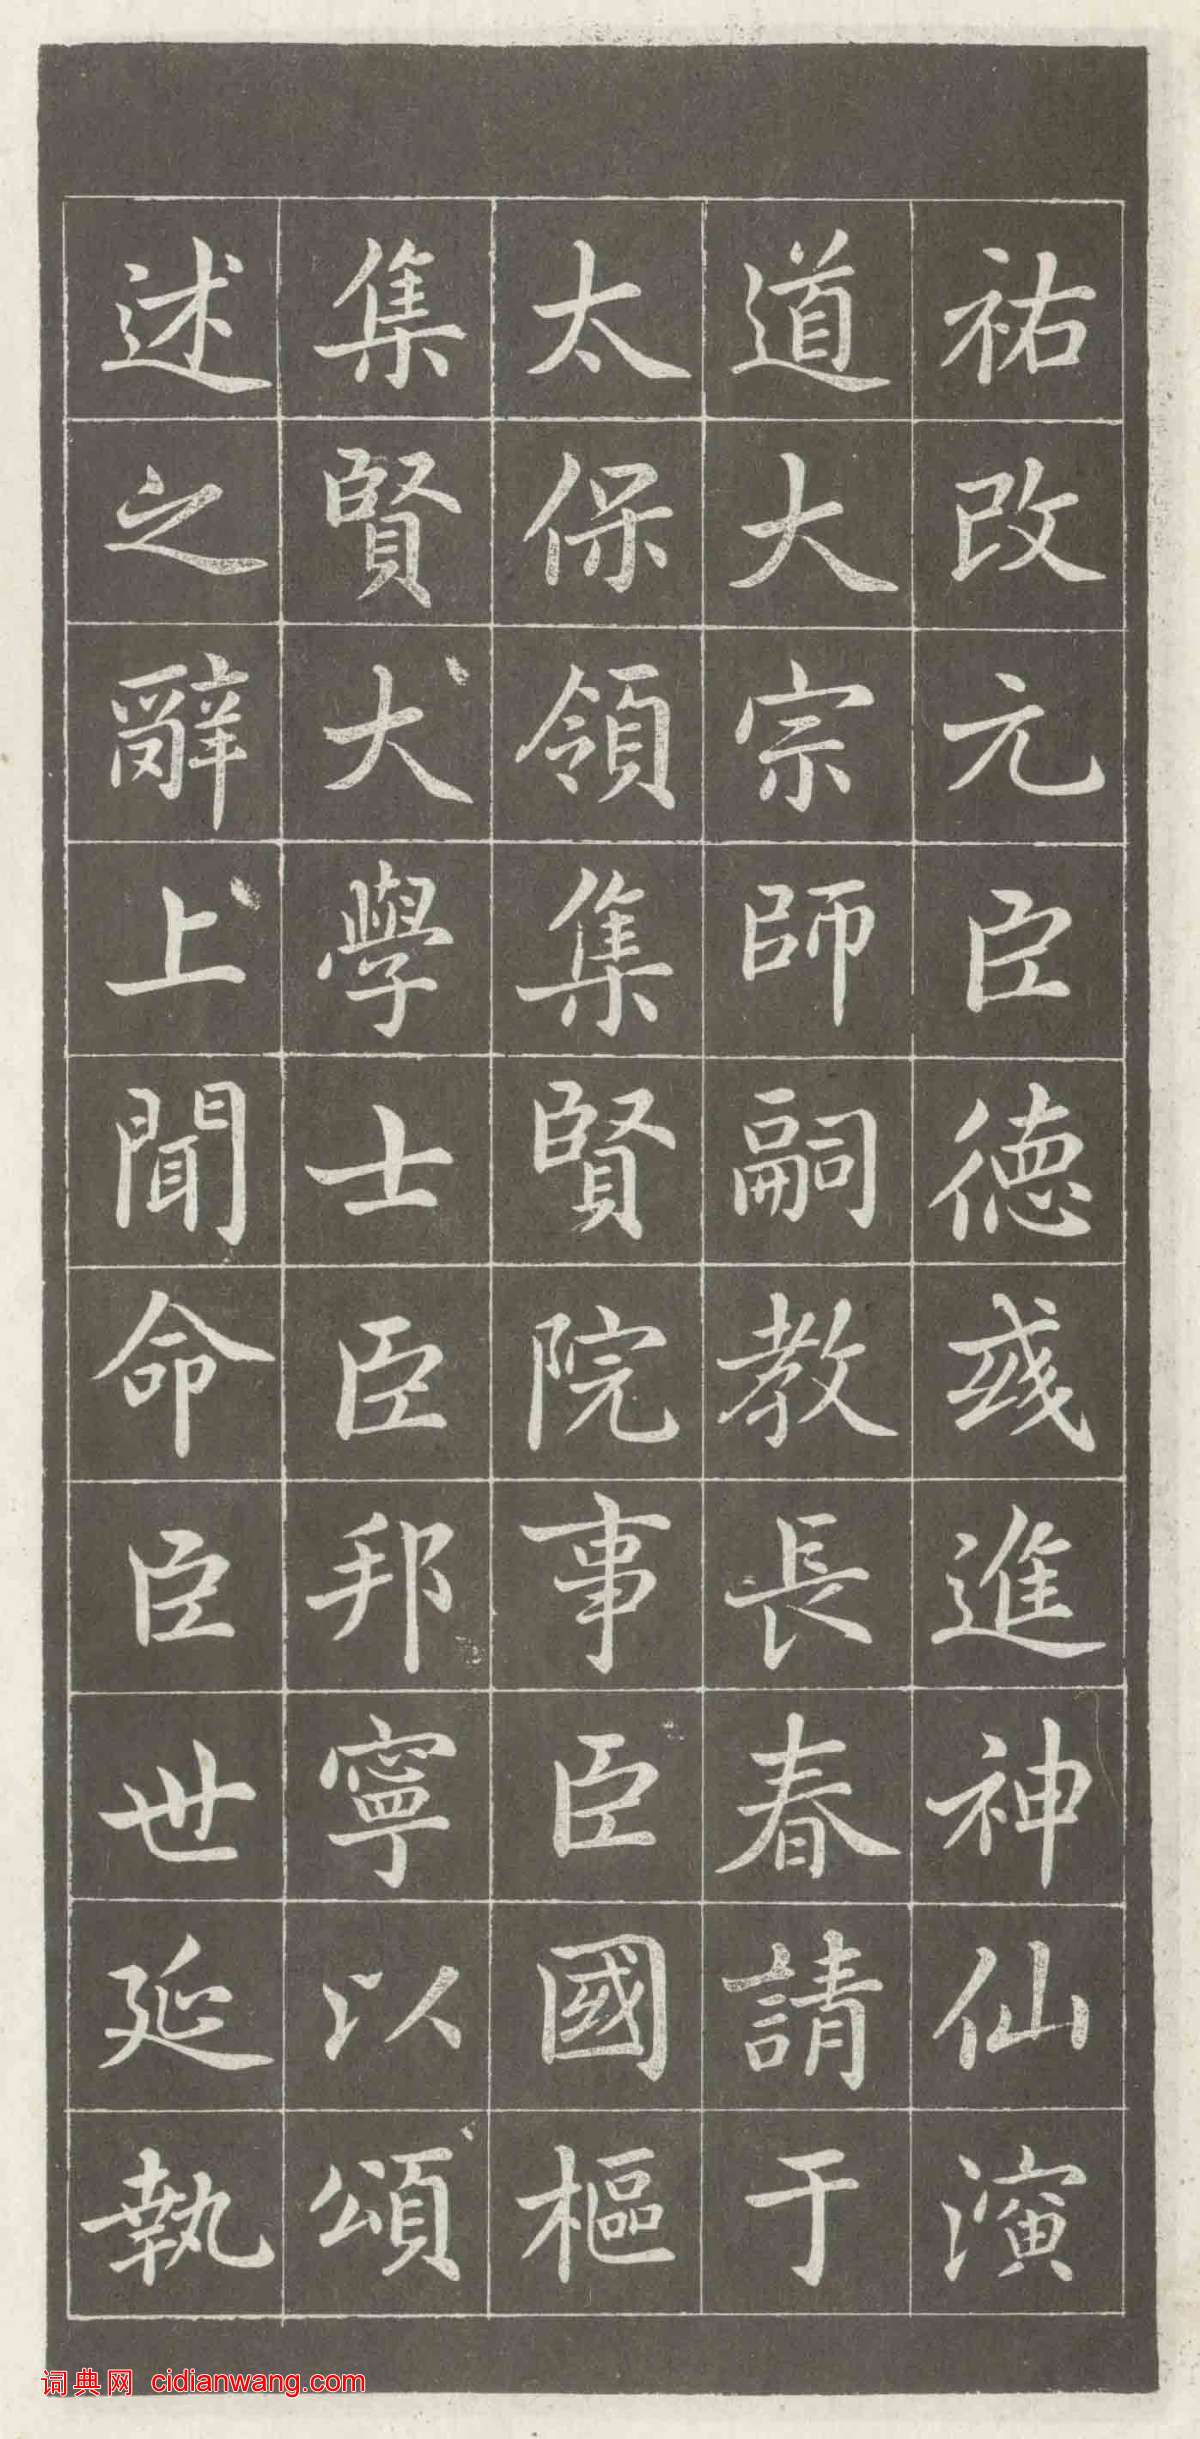 祐改元臣德彧進神仙演
道大宗師嗣教長春請于
太保領集賢院事臣國樞
集賢大學士臣邦寧以頌
述之辭上聞命臣世延執
词典网 cidianwang.com